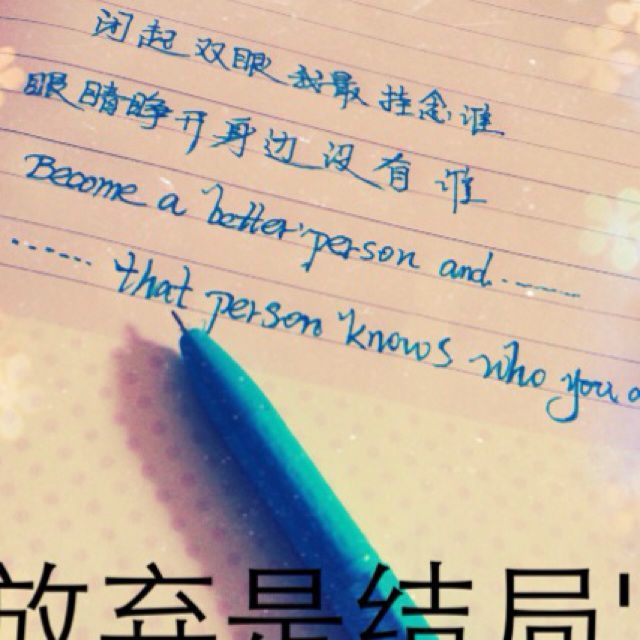 闭起双眼我最挂念谁
眼睛睁开身边没有谁
Become a better person and......
...... that person knows who you a
放弃是结局'